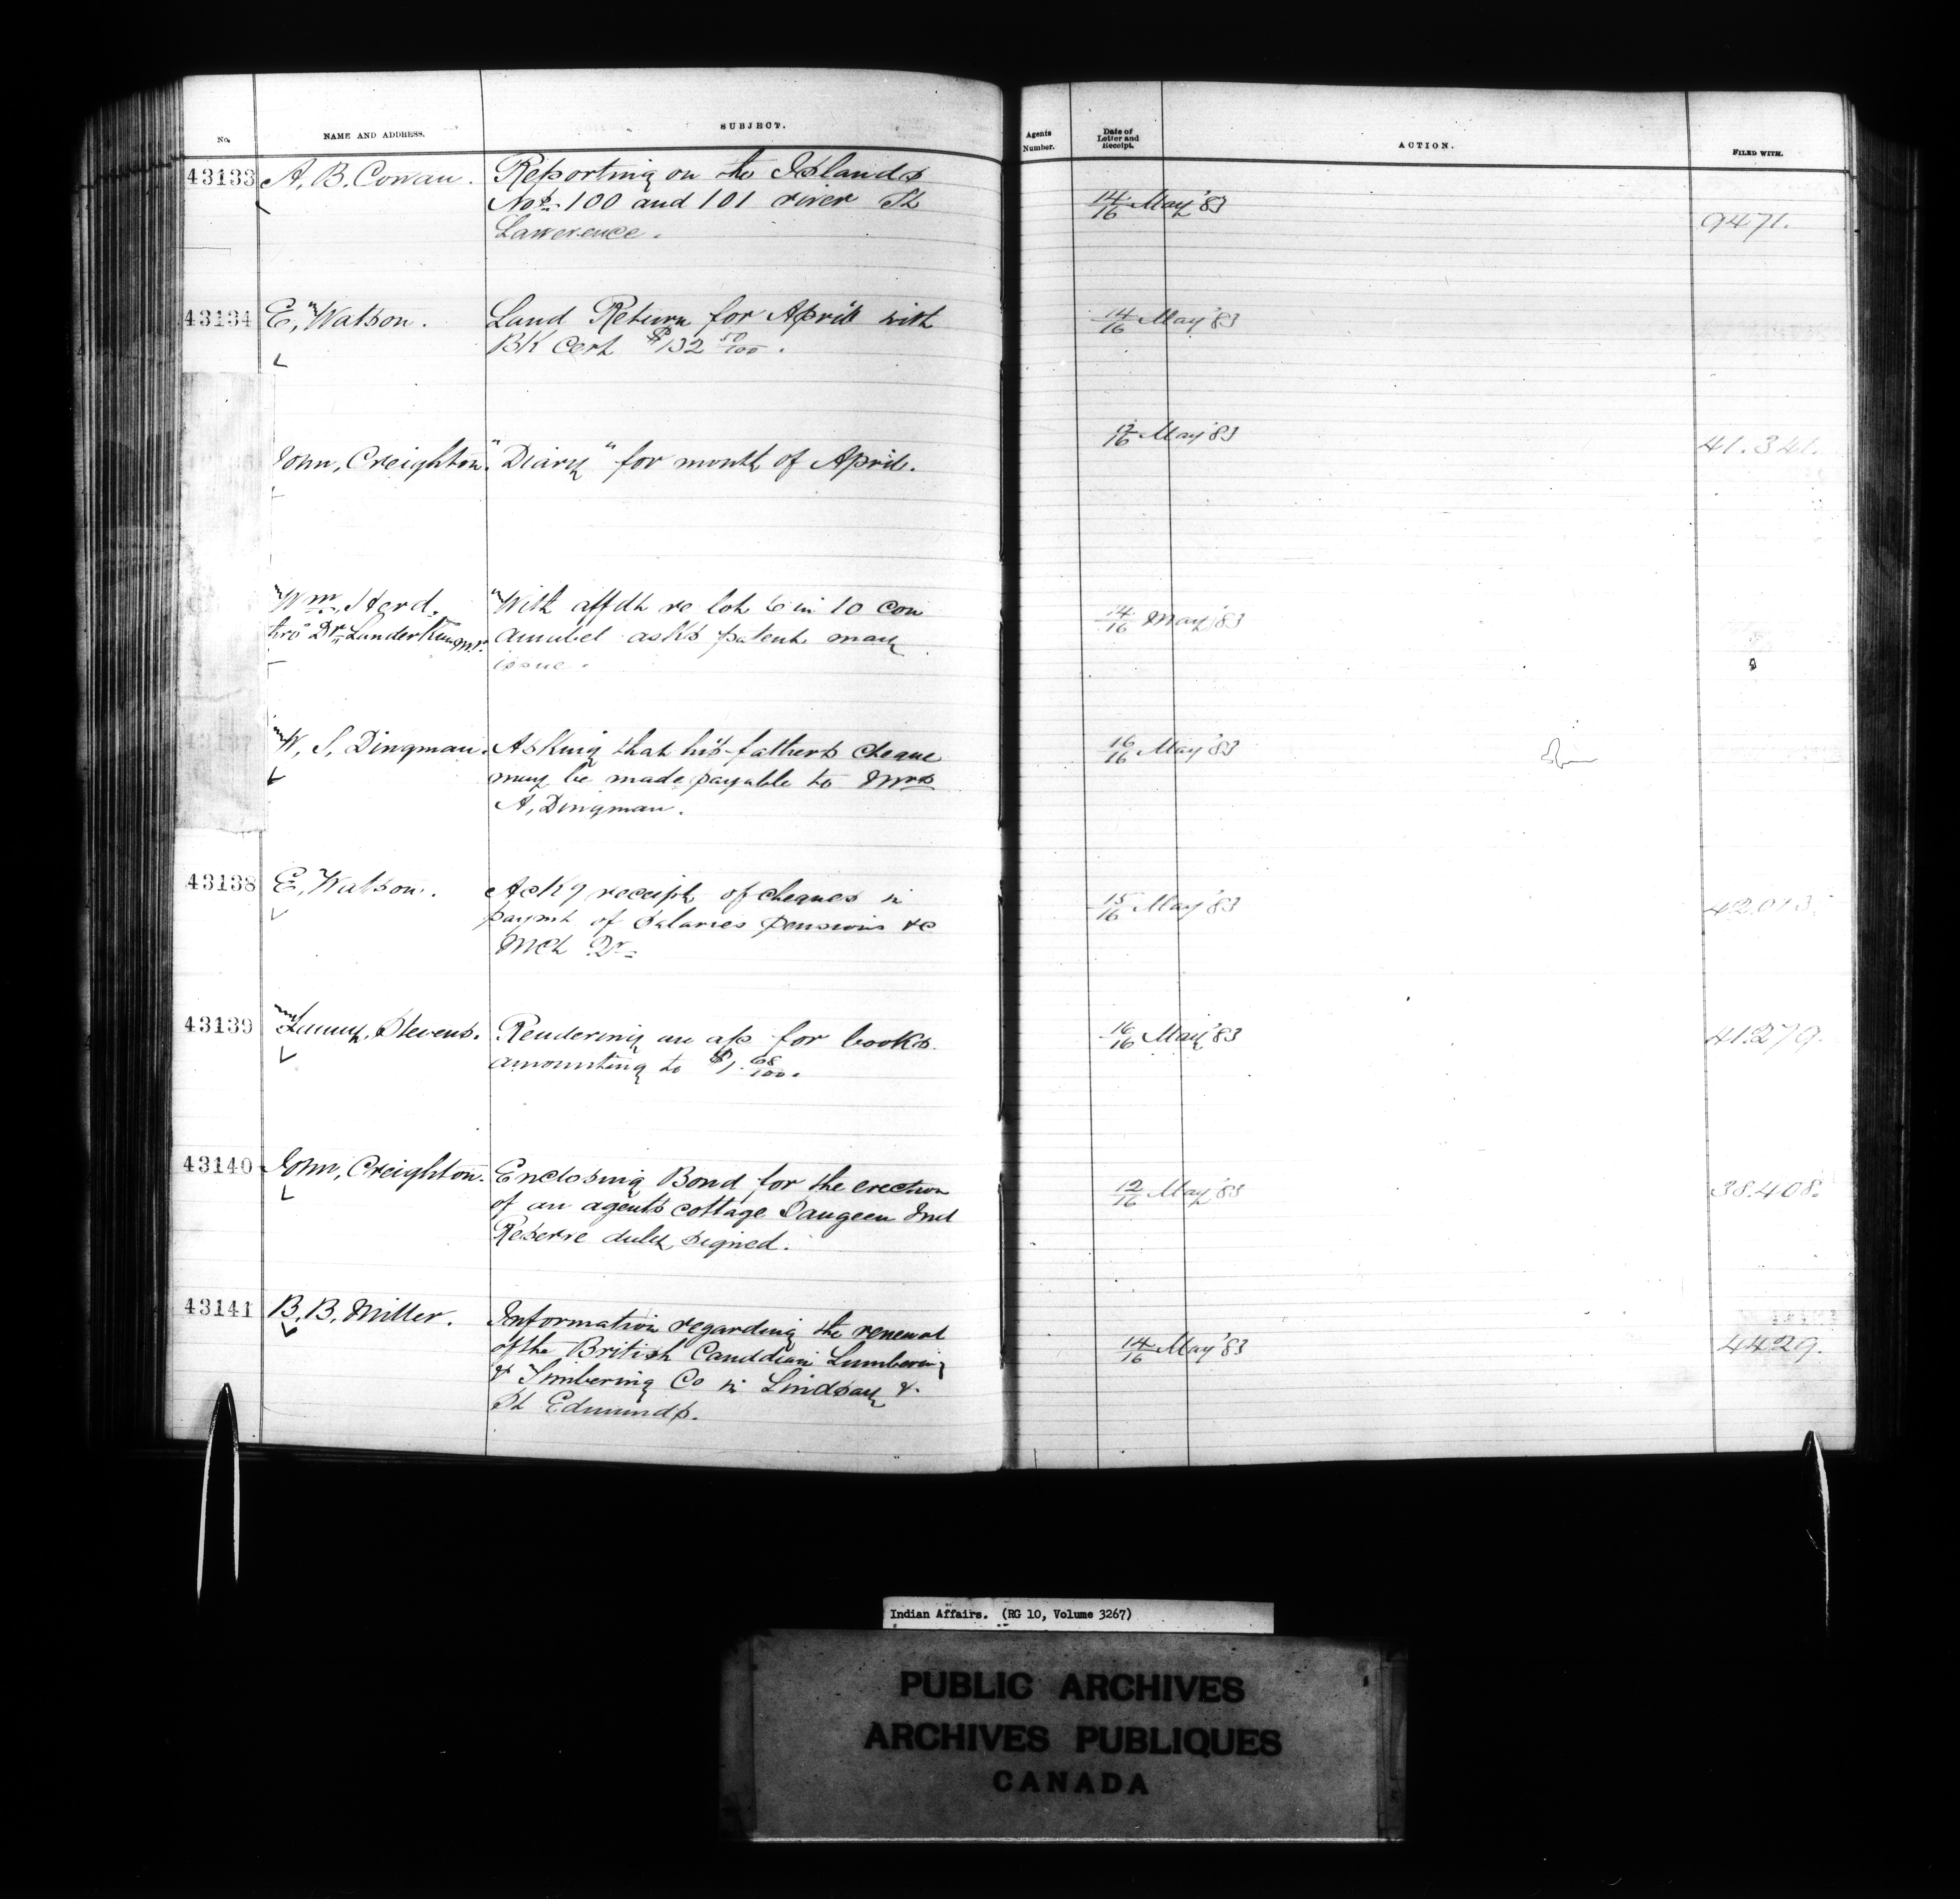 No. NAME AND ADDRESS. SUBJECT. Agents Number. Date of Letter and Receipt. ACTION. FILED WITH.
43133 A. B. Cowan. Reporting on the Islands
Nos. 100 and 101 river St
Lawerence. 14/16 May '83 9471.
43134 E, Watson. Land Return for April with
BK Cert $132 50/100. 14/16 May '83
John, Creighton. "Diary" for month of April. 12/16 May '83 41.341.
Wm, Herd. With affdt re lot 6 in 10 con
thro' Dr. Landerkin M.P. Amabel asks patent may
issue. 14/16 May '83
W. S. Dingman. Asking that his fathers cheque
may be made payable to Mrs
A, Dingman. 16/16 May '83
43138 E, Watson. Ackg receipt of cheques in
paymt of Salaries pensions &c
Mch Qr. 15/16 May '83 42.013.
43139 Stevens. Rendering an a/c for books
amounting to $1. 68/100. 16/16 May '83 41.279.
43140 John, Creighton. Enclosing Bond for the erection
of an agents cottage Saugeen Ind
Reserve duly signed. 12/16 May '83 38.408.
43141 B. B. Miller. Information regarding the renewal
of the British Canddian Lumbering
& Timbering Co in Lindsay &
St Edmunds. 14/16 May '83 4429.
Indian Affairs. (RG 10, Volume 3267)
PUBLIC ARCHIVES
ARCHIVES PUBLIQUES
CANADA